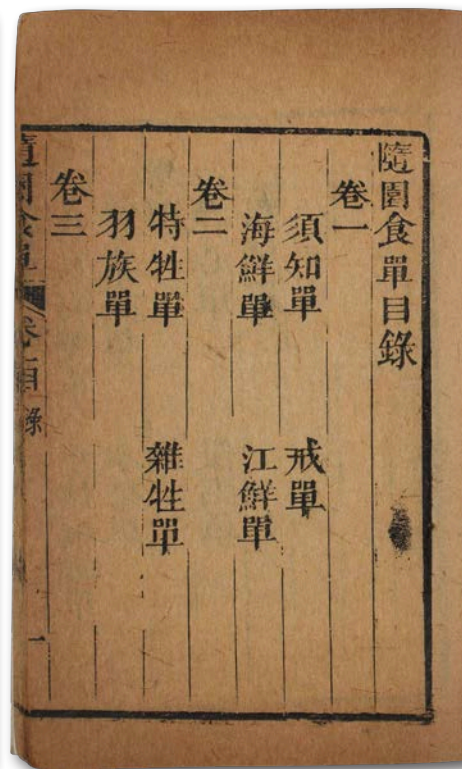 隨園食單目錄
卷一
須知單 戒單
海鮮單 江鮮單
卷二
特牲單 雜牲單
羽族單
卷三
隨園食單 卷首目錄 一